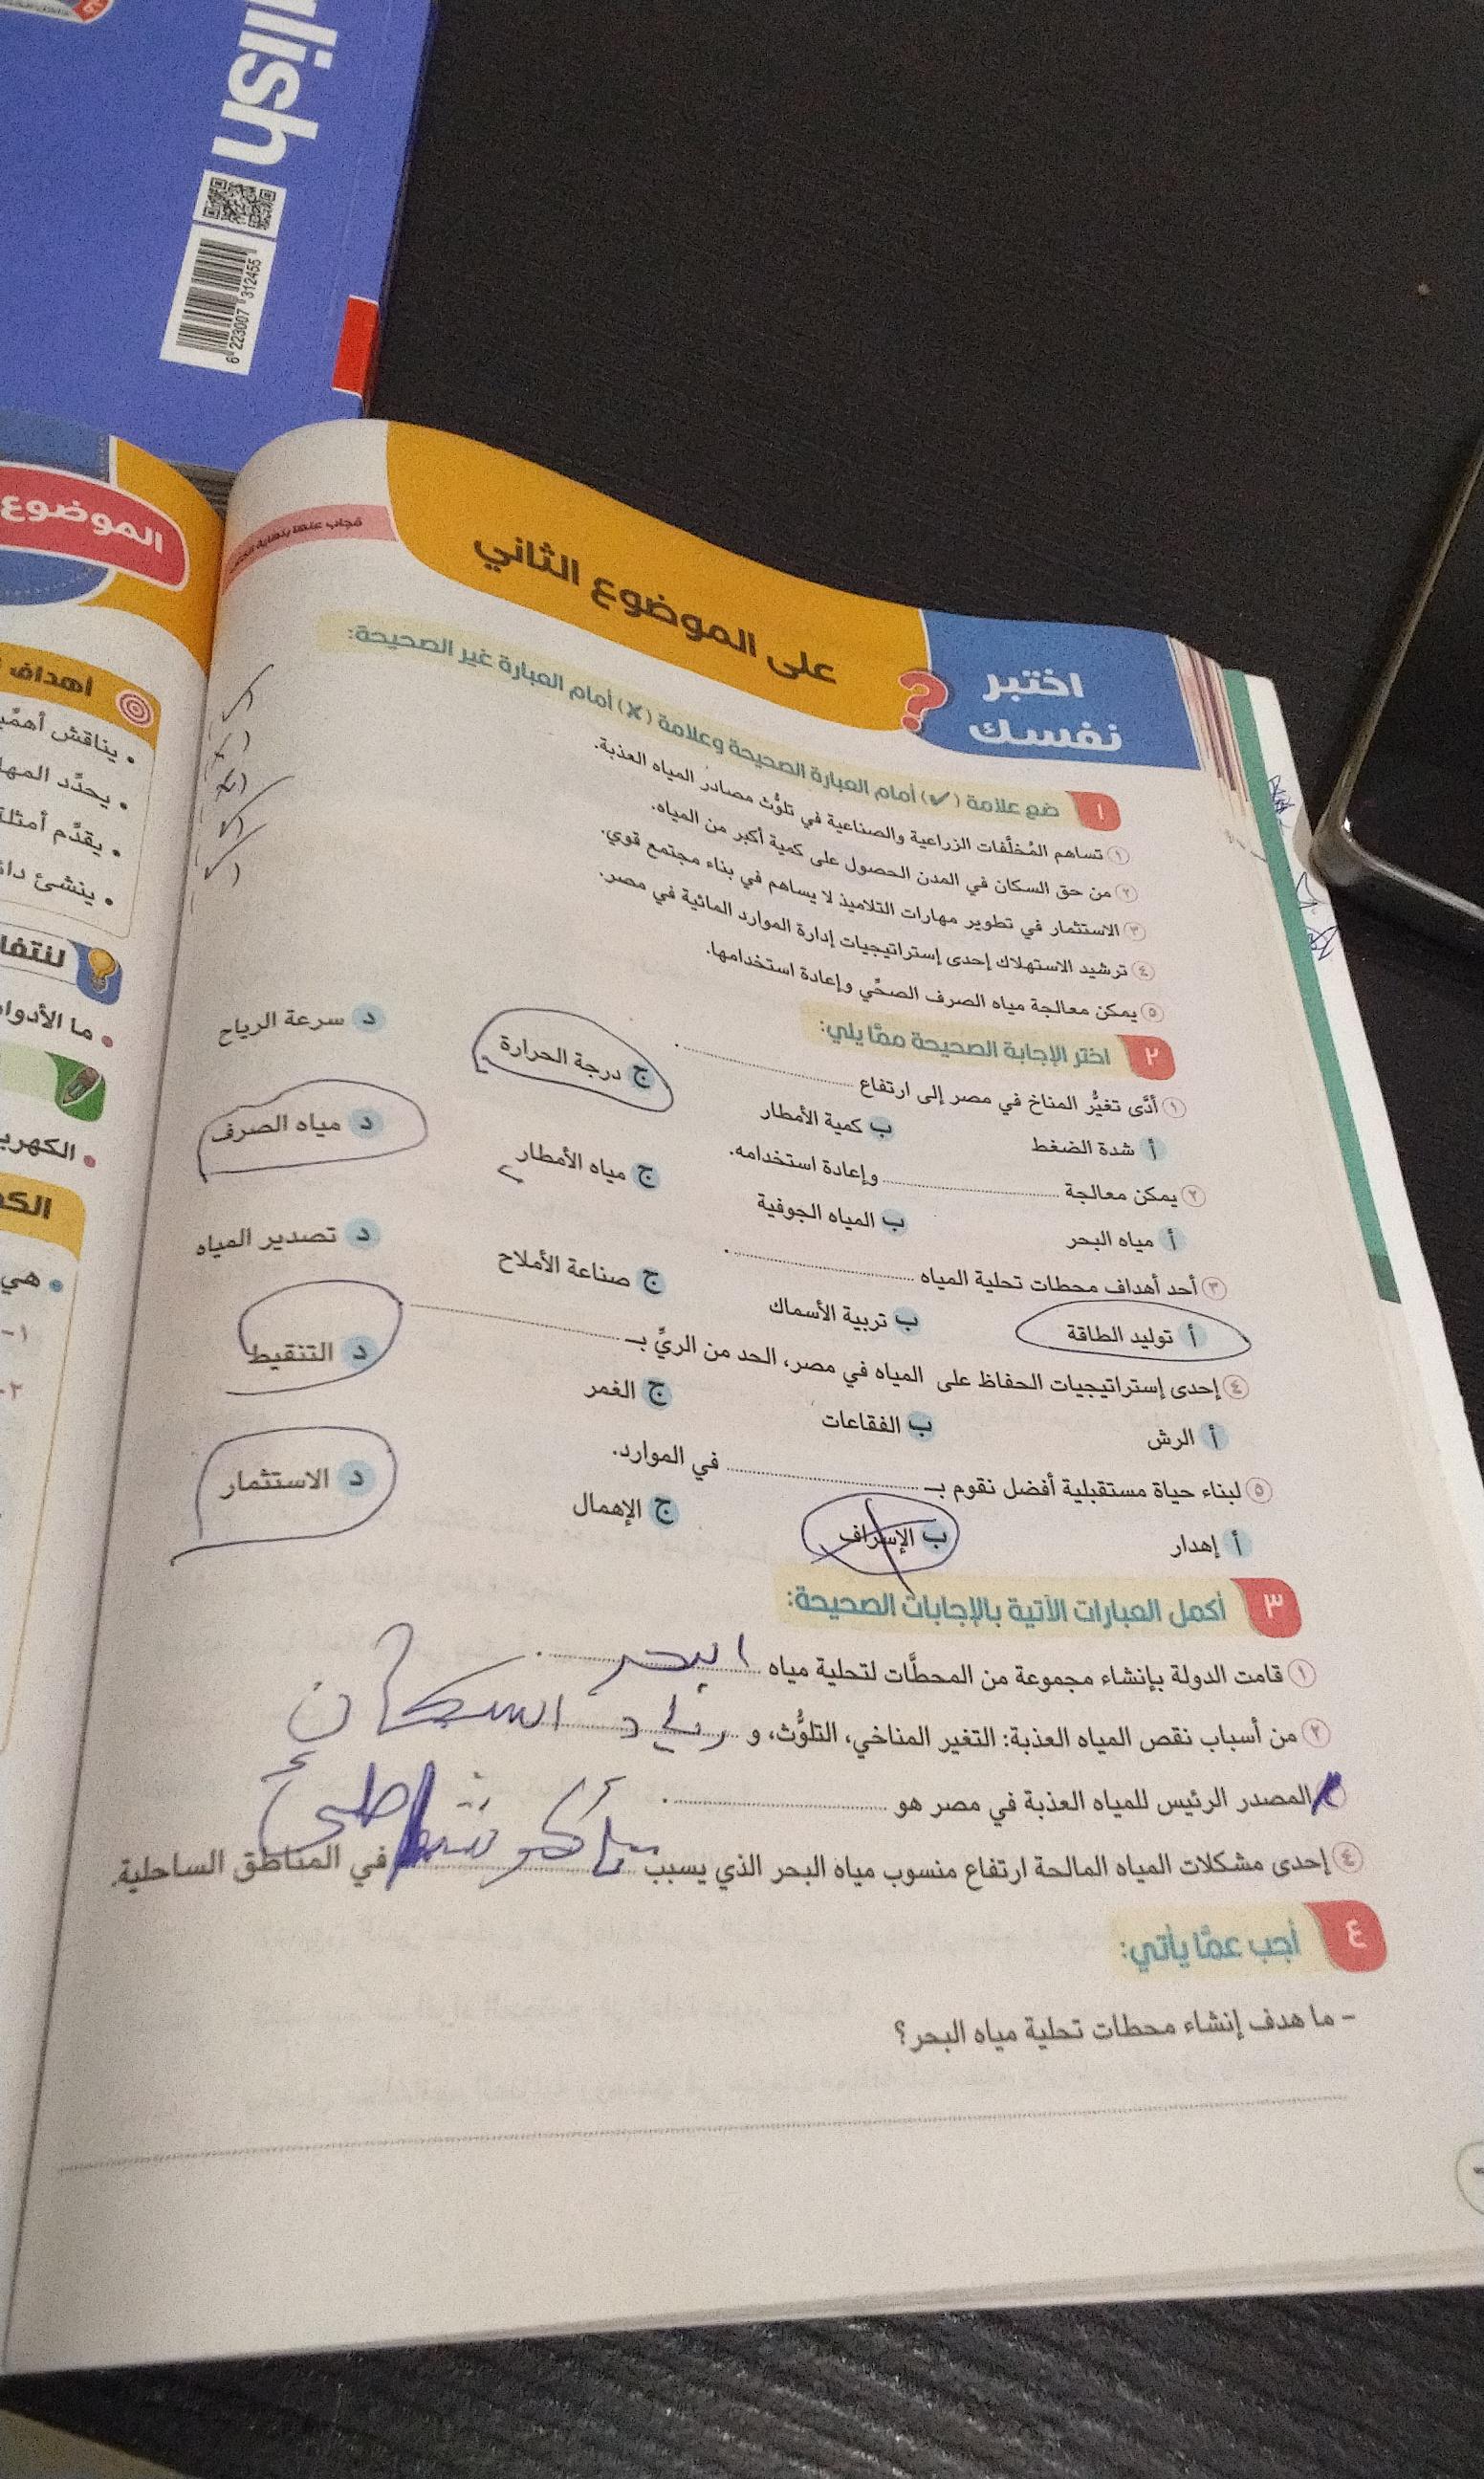 lish
6 223007 312455
الموضوع
أهداف
• يناقش
• يحدد
• يقدم
• ينشئ
• ما
هي
١-
٢-
اختبر نفسك
على الموضوع الثاني
١ ضع علامة (✓) أمام العبارة الصحيحة وعلامة (✗) أمام العبارة غير الصحيحة:
١ تساهم المُخلَّفات الزراعية والصناعية في تلوُّث مصادر المياه العذبة.
٢ من حق السكان في المدن الحصول على كمية أكبر من المياه.
٣ الاستثمار في تطوير مهارات التلاميذ لا يساهم في بناء مجتمع قوي.
٤ ترشيد الاستهلاك إحدى إستراتيجيات إدارة الموارد المائية في مصر.
٥ يمكن معالجة مياه الصرف الصحِّي وإعادة استخدامها.
٢ اختر الإجابة الصحيحة ممَّا يلي:
١ أدَّى تغيُّر المناخ في مصر إلى ارتفاع ........ .
أ شدة الضغط ب كمية الأمطار ج درجة الحرارة د سرعة الرياح
٢ يمكن معالجة ........ وإعادة استخدامه.
أ مياه البحر ب المياه الجوفية ج مياه الأمطار د مياه الصرف
٣ أحد أهداف محطات تحلية المياه ........ .
أ توليد الطاقة ب تربية الأسماك ج صناعة الأملاح د تصدير المياه
٤ إحدى إستراتيجيات الحفاظ على المياه في مصر، الحد من الريِّ بـ ........
أ الرش ب الفقاعات ج الغمر د التنقيط
٥ لبناء حياة مستقبلية أفضل نقوم بـ ........ في الموارد.
أ إهدار ب الإسراف ج الإهمال د الاستثمار
٣ أكمل العبارات الآتية بالإجابات الصحيحة:
١ قامت الدولة بإنشاء مجموعة من المحطَّات لتحلية مياه البحر .
٢ من أسباب نقص المياه العذبة: التغير المناخي، التلوُّث، و السكان
المصدر الرئيس للمياه العذبة في مصر هو ........ .
٤ إحدى مشكلات المياه المالحة ارتفاع منسوب مياه البحر الذي يسبب في المناطق الساحلية.
٤ أجب عمَّا يأتي:
- ما هدف إنشاء محطات تحلية مياه البحر؟